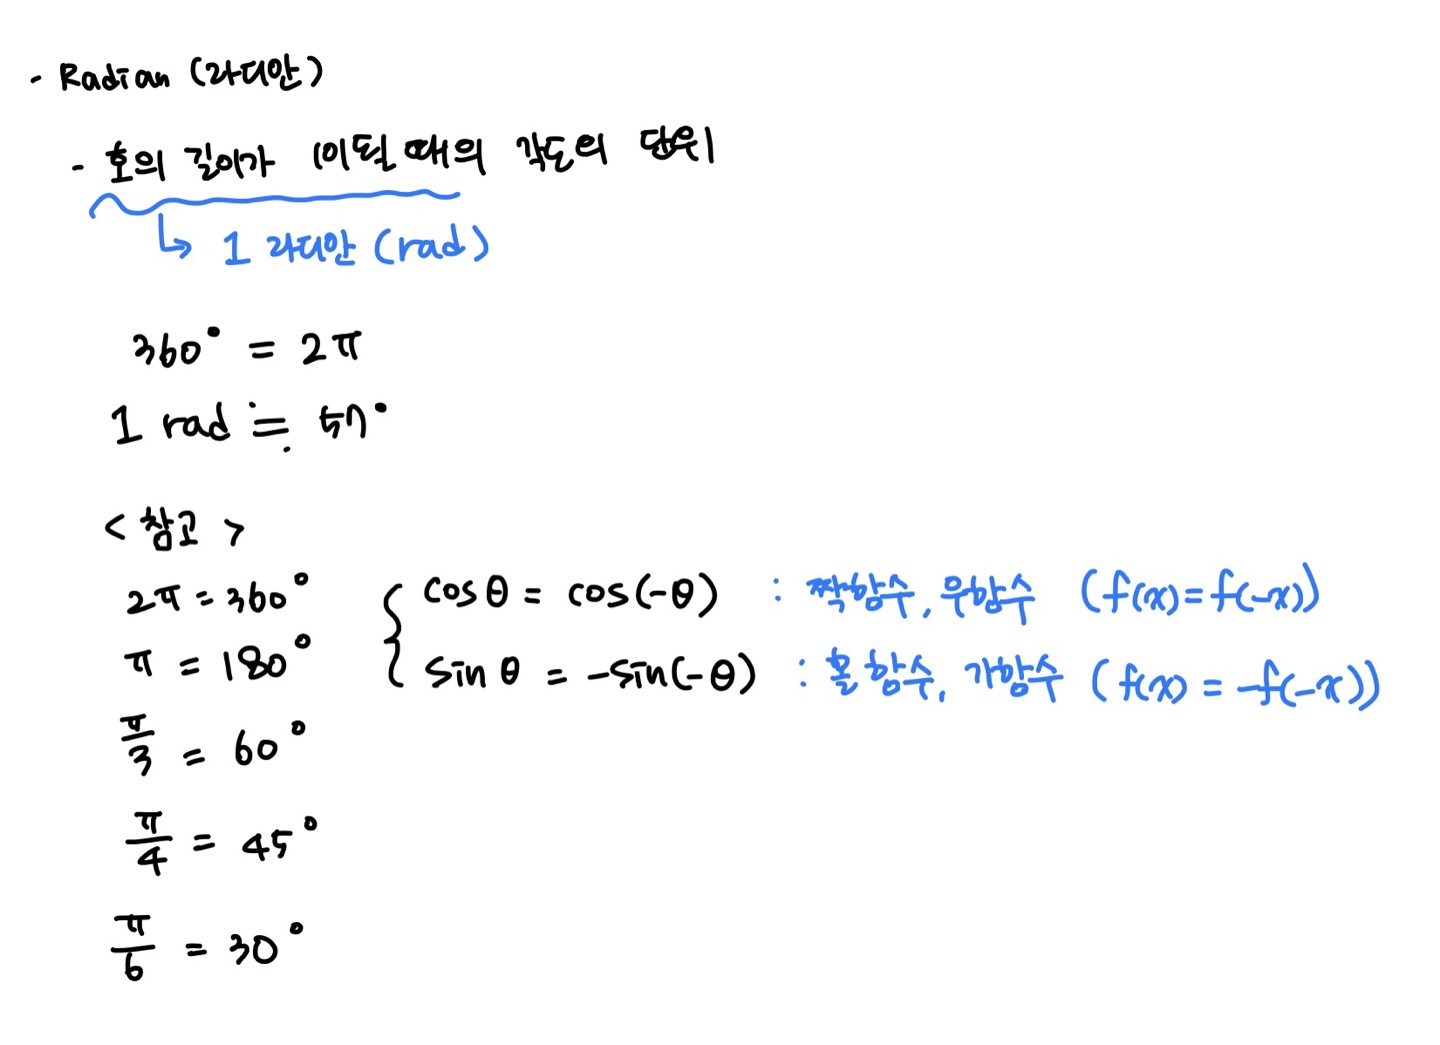 - Radian (라디안)
- 호의 길이가 1이 될 때의 각도의 단위
↳ 1 라디안 (rad)
360° = 2π
1 rad ≒ 57°
< 참고 >
2π = 360°
π = 180°
π/3 = 60°
π/4 = 45°
π/6 = 30°
{ cosθ = cos(-θ) : 짝함수, 우함수 (f(x)=f(-x))
sinθ = -sin(-θ) : 홀함수, 기함수 (f(x) = -f(-x))